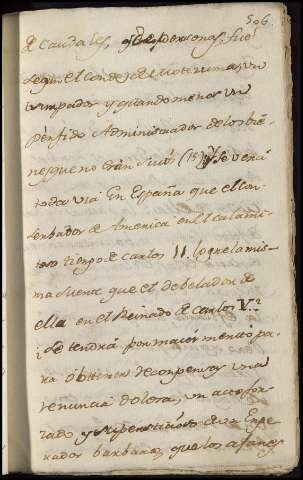 506
de Caudales, y de personas, fué
segun el Conde de Moctezuma, un
usurpador y quando menor un
pérfido Administrador de los bie-
nes que no eran suios (15) y se verá
toda via En España que el con-
serbador de America en el calami-
toso tiempo de Carlos II. logre la mis-
ma suerte que el debelador de
ella en el Reinado de Carlos V.º
¿Se tendrá por maior merito pa-
ra obtener recompensas una
renuncia dolosa, un acto for-
zado y de un Empe-
rador barbaro, que los afanes